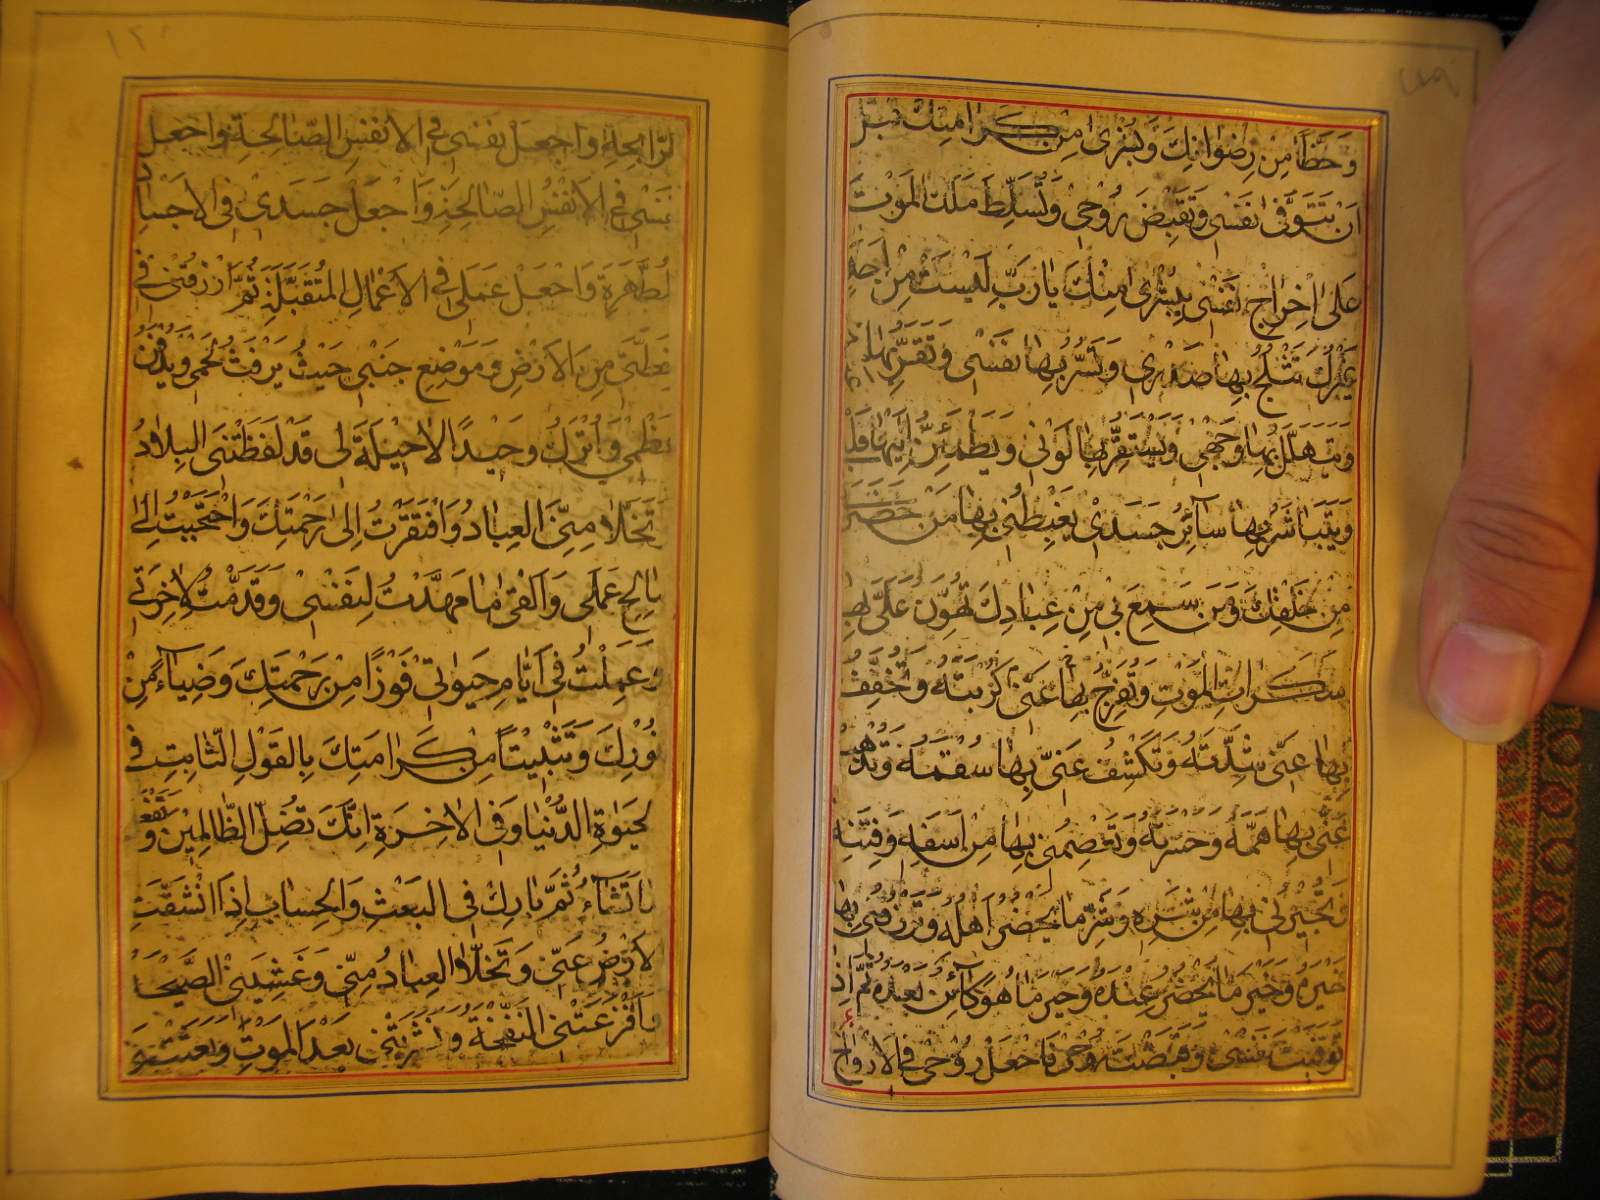 وَحَظّاً مِنْ رِضْوَانِكَ وَبُشْرىٰ مِنْ كَرَامَتِكَ قَبْلَ
اَنْ تَتَوَفّىٰ نَفْسى وَتَقْبِضَ رُوْحى وَتُسَلِّطَ مَلَكَ المَوْتَ
عَلىٰ اِخْرٰاجِ نَفْسى بِبُشْرىٰ مِنْكَ يٰا رَبِّ لَيْسَتْ مِنْ اَحَدٍ
غَيْرِكَ تَثْلَجُ بِهٰا صَدْرى وَتَسُرُّ بِهٰا نَفْسى وَتَقَرُّ بِهٰا
وَيَتَهَلَّلُ بِهٰا وَجْهى وَيَسْتَقِرُّ بِهٰا لَوْنى وَيَطْمَئِنُّ اِلَيْهٰا قَلْبى
وَيَتَبٰاشَرُ بِهٰا سٰآئِرُ جَسَدى يَغْبِطُنى بِهٰا مَنْ حَضَرَنى
مِنْ خَلْقِكَ وَمَن سَمِعَ بى مِنْ عِبٰادِكَ تُهَوِّن عَلَىَّ بِهٰا
سَكَرٰاتِ المَوْتِ وَتُفَرِّجُ بِهٰا عَنّى كُرْبَتَهُ وَتُخَفِّفُ
بِهٰا عَنّى شِدَّتَهُ وَتَكْشِفُ عَنّى بِهٰا سُقْمَهُ وَتُذْهِبُ
عَنّى بِهٰا هَمَّهُ وَحَسْرَتَهُ وَتَعْصِمُنى بِهٰا مِنْ اَسَفِهِ وَفِتْنَتِهِ
وَتُجيرُنى بِهٰا مِنْ شَرِّهِ وَشَرِّ مٰا يَحْضُرُ اَهْلَهُ وَتَرْزُقُنى بِهٰا
خَيْرَهُ وَخَيْرَ مٰا يَحْضُرُ عِنْدَهُ وَخَيْرَ مٰا هُوَ كٰآئِن بَعْدَهُ ثُمَّ اِذٰا
تَوَفَّيْتَ نَفْسى وَقَبَضْتَ رُوْحى فَاجْعَلْ رُوْحى فِى الاَرْوٰاحِ
الرّٰابِحَةِ وَاجْعَلْ نَفْسى فِى الاَنْفُسِ الصّٰالِحَةِ وَاجْعَلْ
نَفْسى فِى الاَنْفُسِ الصّٰالِحَةِ وَاجْعَلْ جَسَدى فِى الاَجْسٰادِ
المُطَهَّرَةِ وَاجْعَلْ عَمَلى فِى الاَعْمٰالِ المُتَقَبَّلَةِ ثُمَّ ارْزُقْنى فى
خِطَّتى مِنَ الاَرْضِ وَمَوْضِعِ جَنْبى حَيْثُ يَرْفَتُ لَحْمى وَيُدْفَنُ
عَظْمى وَاُتْرَكُ وَحيْداً لاٰحيْلَةَ لى قَدْ لَفَظَتْنِى البِلاٰدُ
وَتَخَلاّٰ مِنِّى العِبٰادُ وَافْتَقَرْتُ اِلىٰ رَحْمَتِكَ وَاحْتَجْتُ اِلىٰ
صٰالِحِ عَمَلى وَاَلْقىٰ مٰا مَهَّدْتُ لِنَفْسى وَقَدَّمْتُ لاِخِرَتى
وَعَمِلْتُ فى اَيّٰامِ حَيوٰتى فَوْزاً مِنْ رَحْمَتِكَ وَضِيٰاءً مِنْ
نُوْرِكَ وَتَثْبيْتاً مِنْ كَرٰامَتِكَ بِالقَوْلِ الثّٰابِتِ فى
الحَيٰوةِ الدُّنْيٰا وَفِى الاٰخِرَةِ اِنَّكَ تُضِلُّ الظّٰالِميْنَ وَتَفْعَلُ
مٰا تَشٰآءُ ثُمَّ بٰارِكْ لى فِى البَعْثِ وَالحِسٰابِ اِذَا انْشَقَّتِ
الاَرْضُ عَنّى وَتَخَلاَّ العِبٰادُ مِنّى وَغَشِيَتْنِى الصَّيْحَةُ
وَاَفْزَعَتْنِى النَّفْخَةُ وَنَشَرْتَنى بَعْدَ المَوْتِ وَبَعَثْتَنى